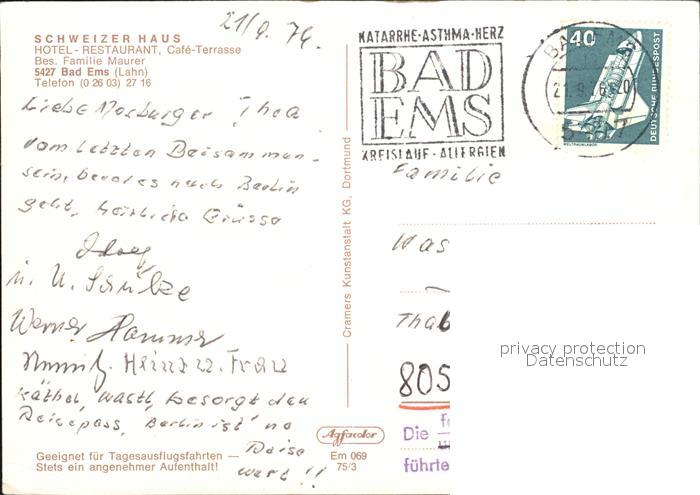 SCHWEIZER HAUS
HOTEL - RESTAURANT, Café-Terrasse
Bes. Familie Maurer
5427 Bad Ems (Lahn)
Telefon (0 26 03) 27 16
21/9. 76.
Liebe Thea
vom letzten Beisammen-
sein, bevor es nach Berlin
geht, herzliche Grüsse
Adolf
u. U. Schulze
Werner Hammer
Heinz u. Frau
Käthe, besorgt den
Reisepass, Berlin ist ne
Reise
wert!!
Geeignet für Tagesausflugsfahrten –
Stets ein angenehmer Aufenthalt!
Cramers Kunstanstalt KG, Dortmund
Agfacolor
Em 069
75/3
KATARRHE·ASTHMA·HERZ
BAD
EMS
KREISLAUF·ALLERGIEN
BAD EMS
21.9.76-20
5427
40
DEUTSCHE BUNDESPOST
WELTRAUMLABOR
Familie
Was
Thal
805
Die
führte
privacy protection
Datenschutz